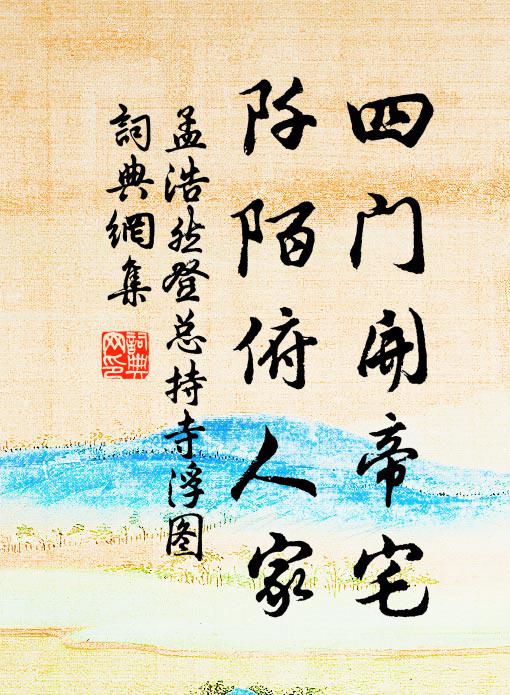 四门開帝宅
阡陌俯人家
孟浩然登总持寺浮图
詞典網集
詞典
网印